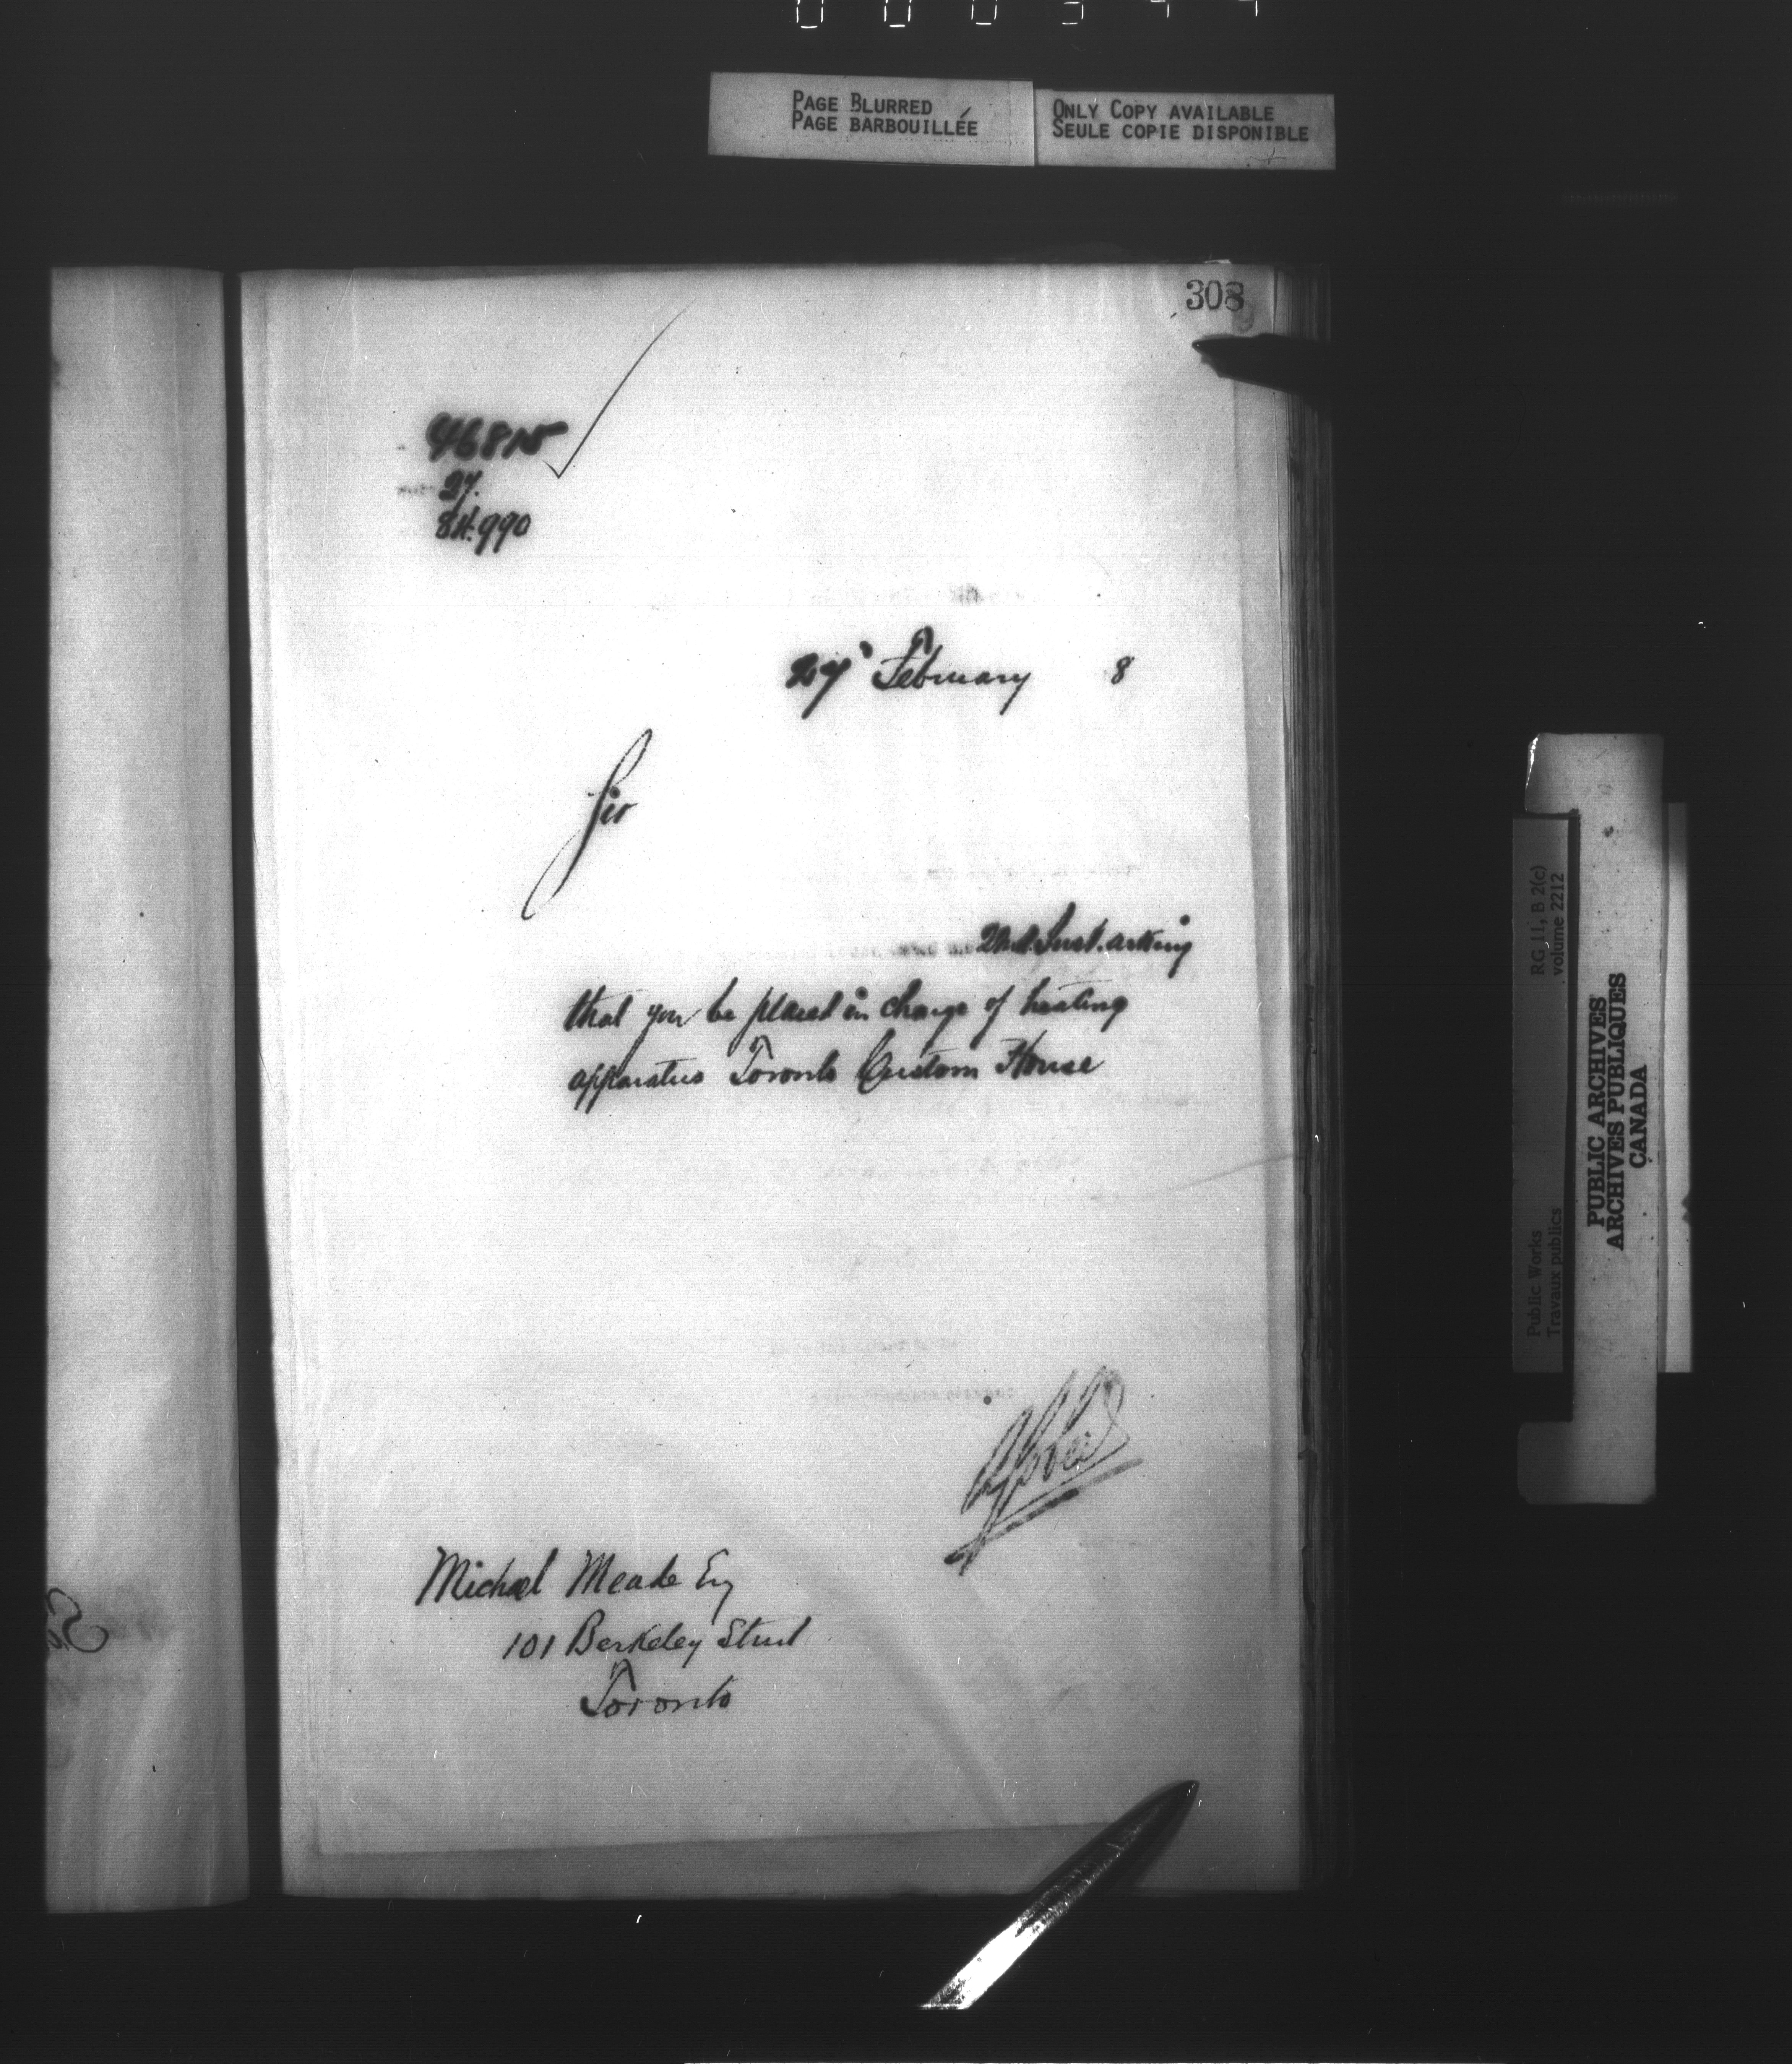 PAGE BLURRED
PAGE BARBOUILLÉE
ONLY COPY AVAILABLE
SEULE COPIE DISPONIBLE
308
46815
27.
84.990
27' February 8
Sir
22nd. Inst. asking
that you be placed in charge of heating
apparatus Toronto Custom House
Michael Meade Esq
101 Berkeley Street
Toronto
RG 11, B 2(c)
volume 2212
Public Works
Travaux publics
PUBLIC ARCHIVES
ARCHIVES PUBLIQUES
CANADA